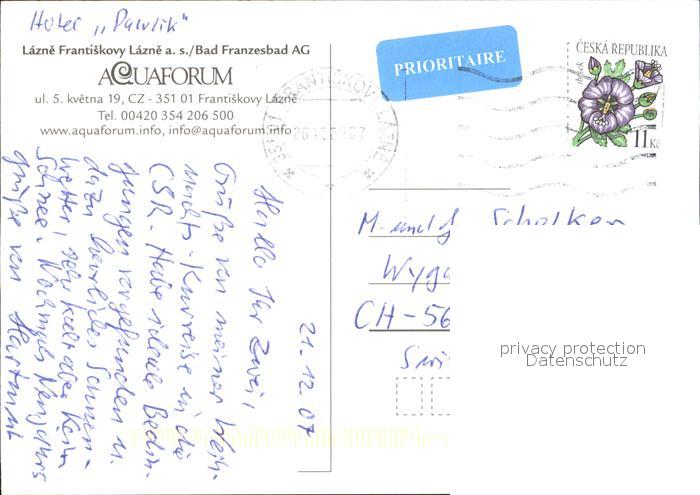 Hotel „Pawlik"
Lázně Františkovy Lázně a. s./Bad Franzesbad AG
AQUAFORUM
ul. 5. května 19, CZ - 351 01 Františkovy Lázně
Tel. 00420 354 206 500
www.aquaforum.info, info@aquaforum.info
PRIORITAIRE
ČESKÁ REPUBLIKA
ibišek
11 Kč
FRANTIŠKOVY LÁZNĚ
21.12.07
Hallo Ihr Zwei,
Grüße von meiner Weih-
nachts-Kurreise in die
CSR. Habe ideale Bedin-
gungen vorgefunden u.
dazu herrliches Sonnen-
wetter, sehr kalt aber kein
Schnee. Nochmals Neujahrs
grüße von Hartmut
M. und J. Schalken
Wyg
CH-56
privacy protection
Datenschutz